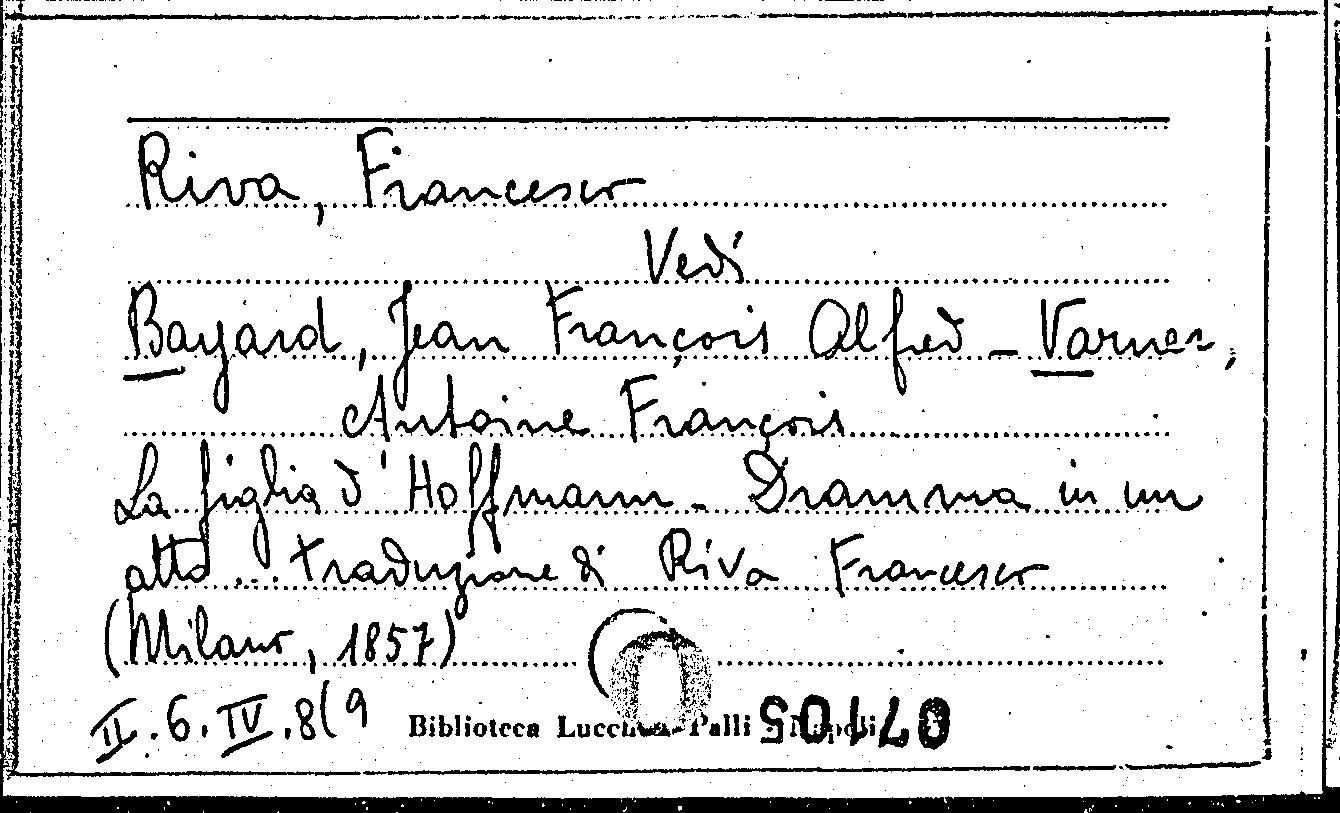 Riva, Francesco
Vedi
Bayard, Jean François Alfred - Varner,
Antoine François
La figlia d'Hoffmann - Dramma in un
atto ... traduzione di Riva Francesco
(Milano, 1857)
II.6.IV.8(9
Biblioteca Lucchesi-Palli - Napoli